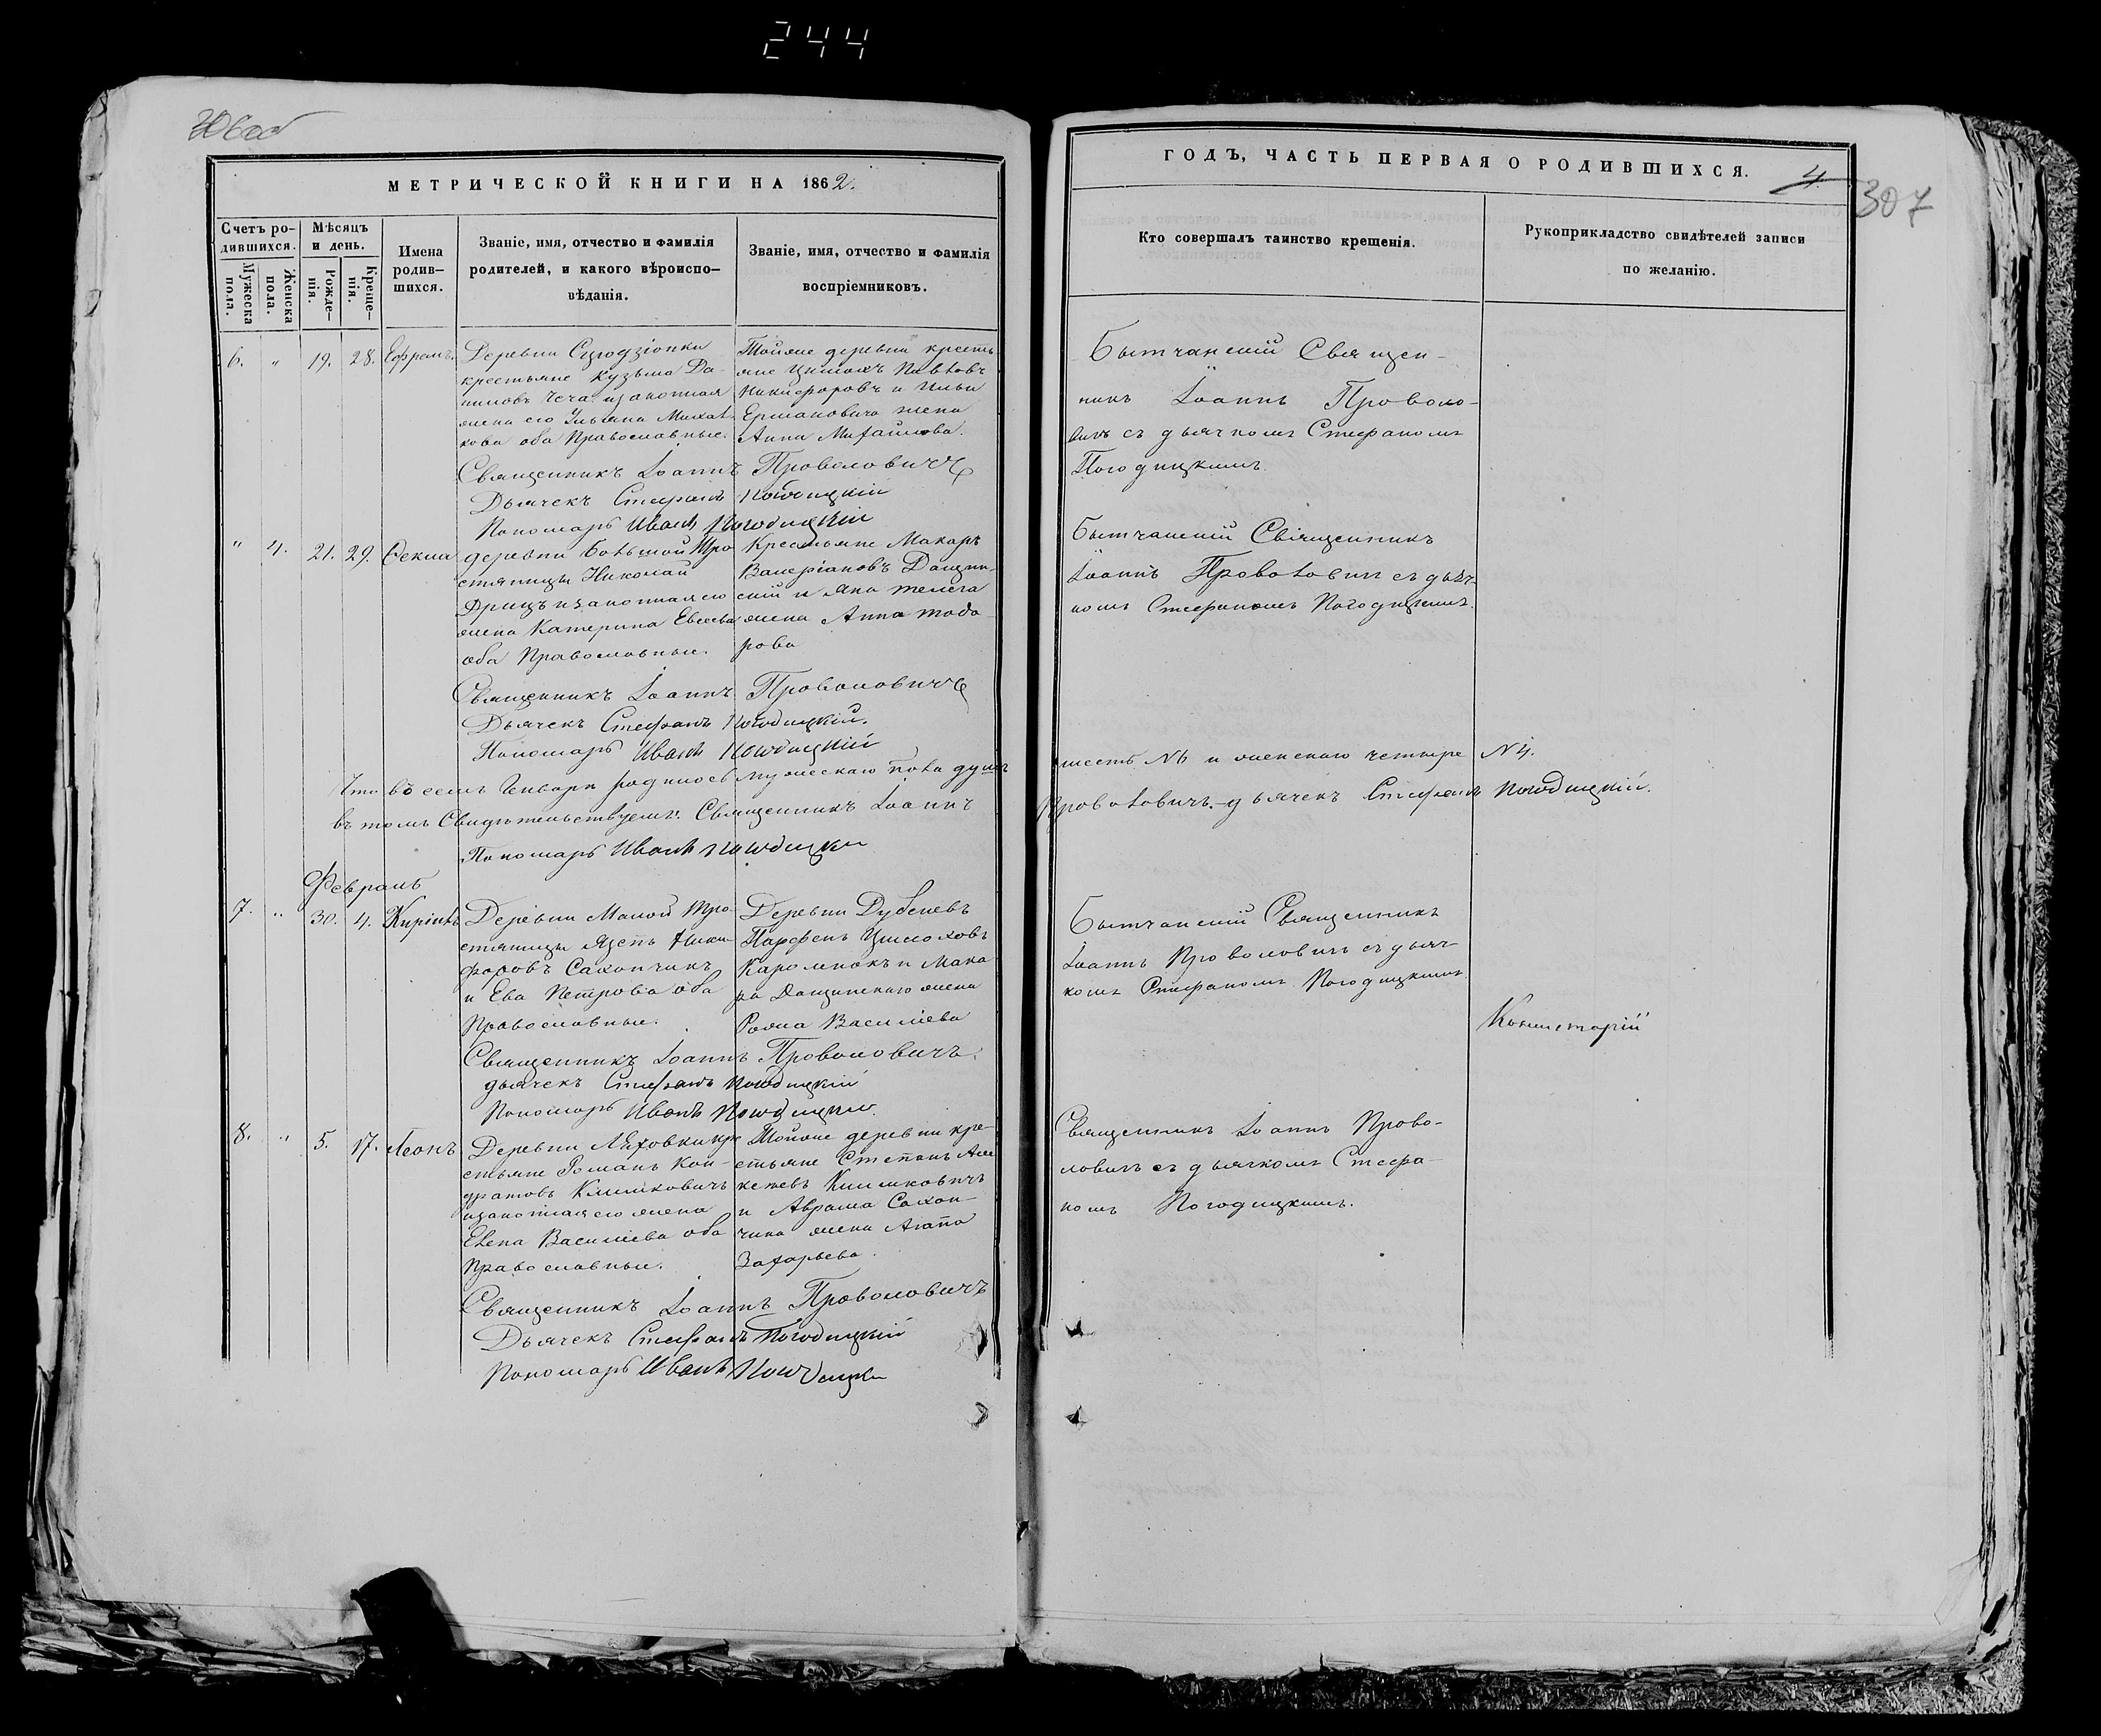 244
306 об
МЕТРИЧЕСКОЙ КНИГИ НА 1862.
ГОДЪ, ЧАСТЬ ПЕРВАЯ О РОДИВШИХСЯ.
4
307
Счетъ ро-
дившихся.
Мужеска
пола.
Женска
пола.
Мѣсяцъ
и день.
Рожде-
нія.
Креще-
нія.
Имена
родив-
шихся.
Званіе, имя, отчество и фамилія
родителей, и какого вѣроиспо-
вѣданія.
Званіе, имя, отчество и фамилія
воспріемниковъ.
Кто совершалъ таинство крещенія.
Рукоприкладство свидѣтелей записи
по желанію.
6. " 19. 28. Ефремъ.
Деревни
крестьяне Кузьма Да-
ниловъ Чеча и законная
жена его Ульяна Михал-
кова оба Православные.
Тойже деревни кресть-
яне Цимохъ Павловъ
Никифоровъ и Ильи
Ермановича жена
Анна Михайлова.
Бытчанскій Священ-
никъ Іоаннъ Проволо-
вичъ съ дьячкомъ Стефаномъ
Погодицкимъ.
Священникъ Іоаннъ Проволовичъ
Дьячекъ Стефанъ Погодицкій
Пономарь Иванъ Погодицкій
" 4. 21. 29. Фекла
деревни Большой Тро-
стяницы Николай
Дрицъ и законная его
жена Катерина Евсеева
оба Православные.
Крестьяне Макаръ
Валеріановъ Дащин-
скій и Яна Телега
жена Анна Тодо-
рова
Бытчанскій Священникъ
Іоаннъ Проволовичъ съ дьяч-
комъ Стефаномъ Погодицкимъ.
Священникъ Іоаннъ Проволовичъ
Дьячекъ Стефанъ Погодицкій.
Пономарь Иванъ Погодицкій
Что въ семъ Генваре родилось мужескаго пола душъ шесть №6 и женскаго четыре №4.
въ томъ Свидѣтельствуемъ. Священникъ Іоаннъ Проволовичъ.-дьячекъ Стефанъ Погодицкій.
Пономарь Иванъ Погодицкій
Февраль
7. " 30. 4. Кирилъ
Деревни Малой Тро-
стяницы Яцентъ Ники-
форовъ Сахончикъ
и Ева Петрова оба
Православные.
Деревни Дубеневъ
Парфенъ Цимоховъ
Каролюкъ и Мака-
ра Дащинскаго жена
Розиа Василіева
Бытчанскій Священникъ
Іоаннъ Проволовичъ съ дьяч-
комъ Стефаномъ Погодицкимъ
Священникъ Іоаннъ Проволовичъ.
дьячекъ Стефанъ Погодицкій
Пономарь Иванъ Погодицкій.
8. " 5. 17. Леонъ
Деревни Ляховки кре-
стьяне Романъ Кон-
дратовъ Климковичъ
и законная его жена
Елена Василіева оба
Православные.
Тойже деревни кре-
стьяне Степанъ
Климковичъ
и Аврама Сахон-
чика жена Агапа
Захарьева.
Священникъ Іоаннъ Прово-
ловичъ съ дьячкомъ Стефа-
номъ Погодицкимъ.
Священникъ Іоаннъ Проволовичъ
Дьячекъ Стефанъ Погодицкій
Пономарь Иванъ Погодицкій